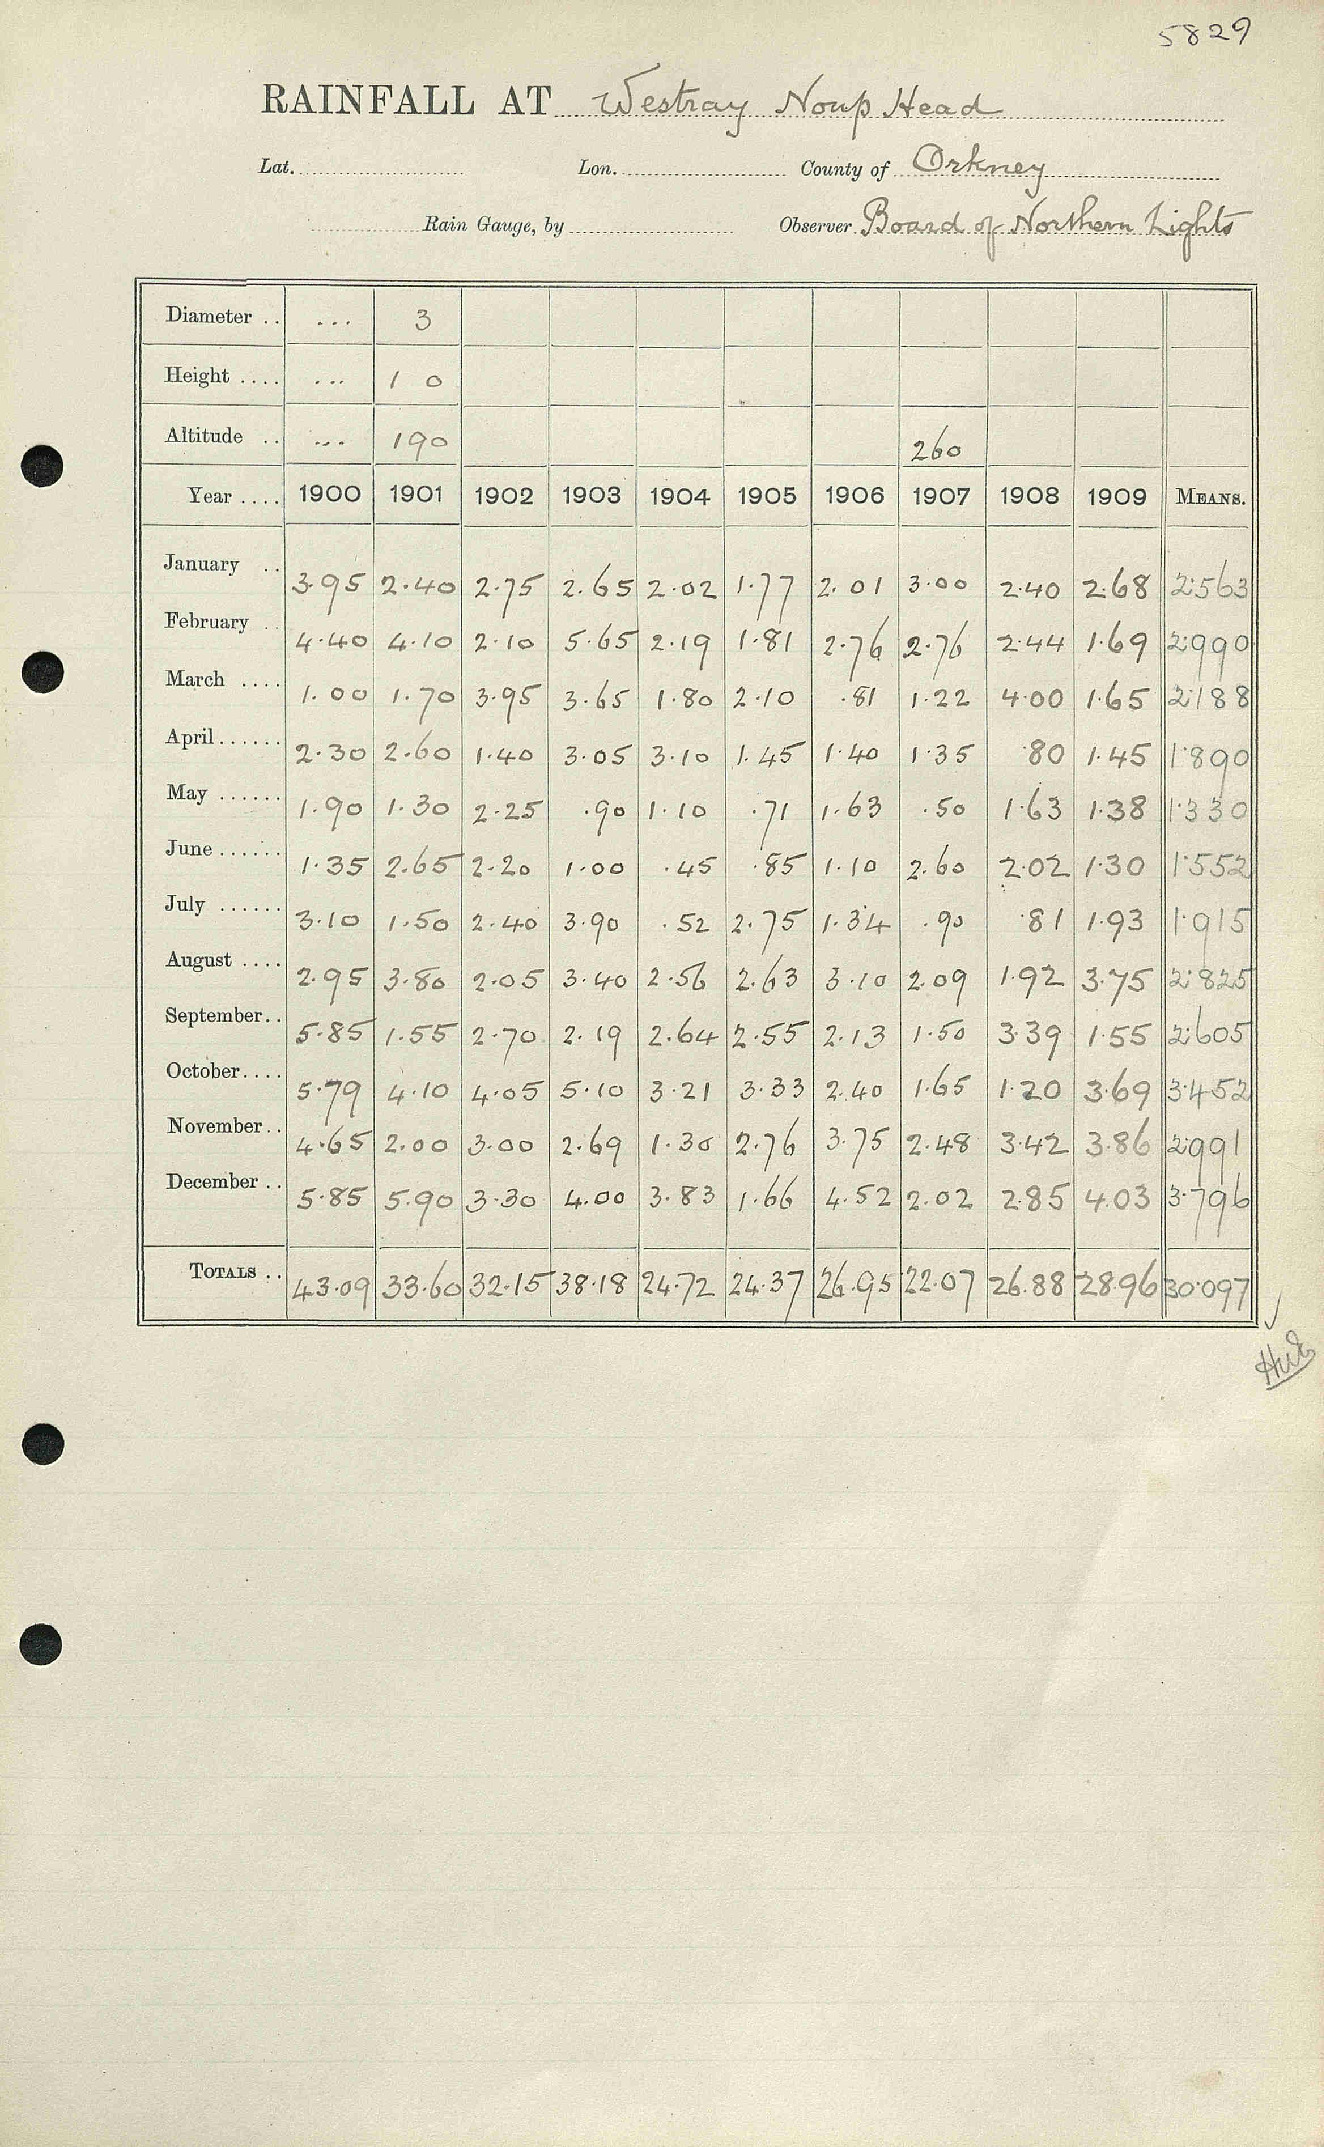 5829
RAINFALL AT Westray Noup Head
Lat. Lon. County of Orkney
Rain Gauge, by Observer Board of Northern Lights
Diameter .. ... 3
Height .... ... 1 0
Altitude .. ... 190 260
Year .... 1900 1901 1902 1903 1904 1905 1906 1907 1908 1909 MEANS.
January .. 3.95 2.40 2.75 2.65 2.02 1.77 2.01 3.00 2.40 2.68 2.563
February .. 4.40 4.10 2.10 5.65 2.19 1.81 2.76 2.76 2.44 1.69 2.990
March .... 1.00 1.70 3.95 3.65 1.80 2.10 .81 1.22 4.00 1.65 2.188
April...... 2.30 2.60 1.40 3.05 3.10 1.45 1.40 1.35 .80 1.45 1.890
May ...... 1.90 1.30 2.25 .90 1.10 .71 1.63 .50 1.63 1.38 1.330
June...... 1.35 2.65 2.20 1.00 .45 .85 1.10 2.60 2.02 1.30 1.552
July ...... 3.10 1.50 2.40 3.90 .52 2.75 1.34 .90 .81 1.93 1.915
August .... 2.95 3.80 2.05 3.40 2.56 2.63 3.10 2.09 1.92 3.75 2.825
September.. 5.85 1.55 2.70 2.19 2.64 2.55 2.13 1.50 3.39 1.55 2.605
October.... 5.79 4.10 4.05 5.10 3.21 3.33 2.40 1.65 1.20 3.69 3.452
November.. 4.65 2.00 3.00 2.69 1.30 2.76 3.75 2.48 3.42 3.86 2.991
December .. 5.85 5.90 3.30 4.00 3.83 1.66 4.52 2.02 2.85 4.03 3.796
TOTALS .. 43.09 33.60 32.15 38.18 24.72 24.37 26.95 22.07 26.88 28.96 30.097